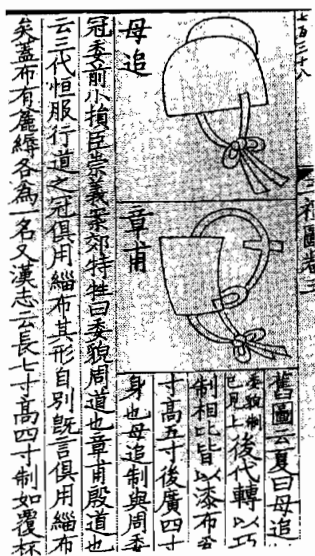 七百三十八
三禮圖卷三
舊圖云夏曰母追
後代轉以巧
制相比皆以漆布為
寸高五寸後廣四寸
身也母追制與周委
母追
章甫
冠委前小損臣崇義案郊特牲曰委貌周道也章甫殷道也
云三代恒服行道之冠俱用緇布其形自別既言俱用緇布
矣蓋布有麄縟各為一名又漢志云長七寸高四寸制如覆杯